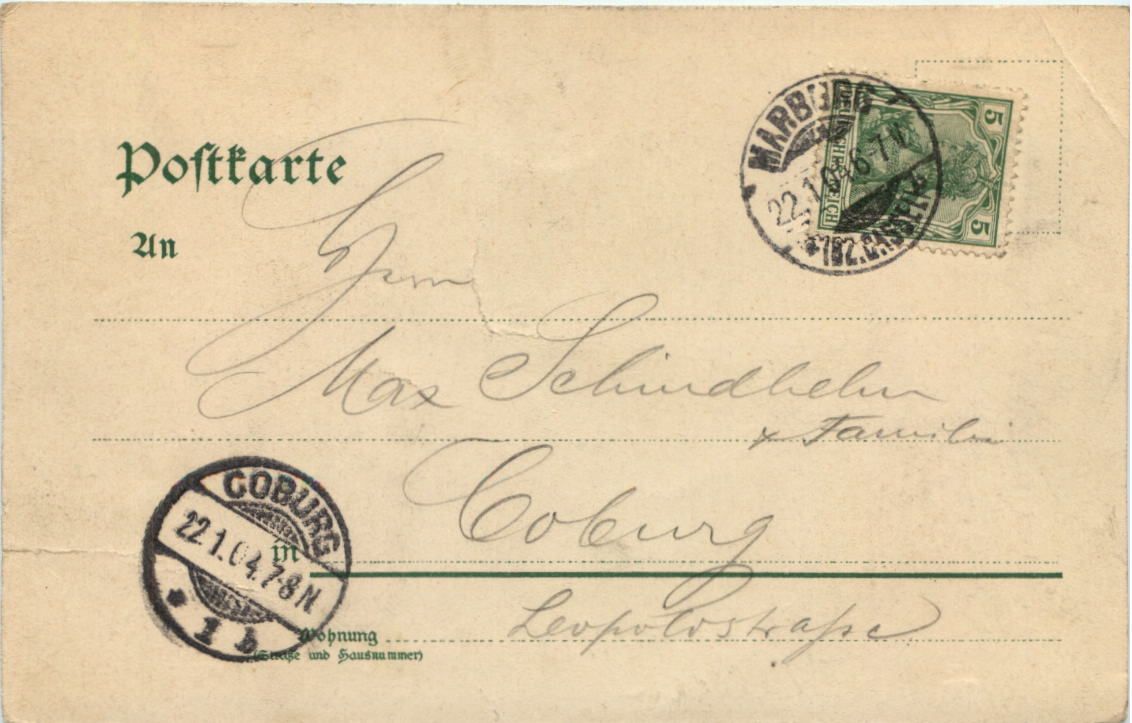 Postkarte
An
MARBURG
22.1.04.6-7N.
5
5
REICH
Herrn
Max Schindhelm
+ Familie
Coburg
COBURG
22.1.04.7-8N
* 1 b
in
Leopoldstraße
Wohnung
(Straße und Hausnummer)